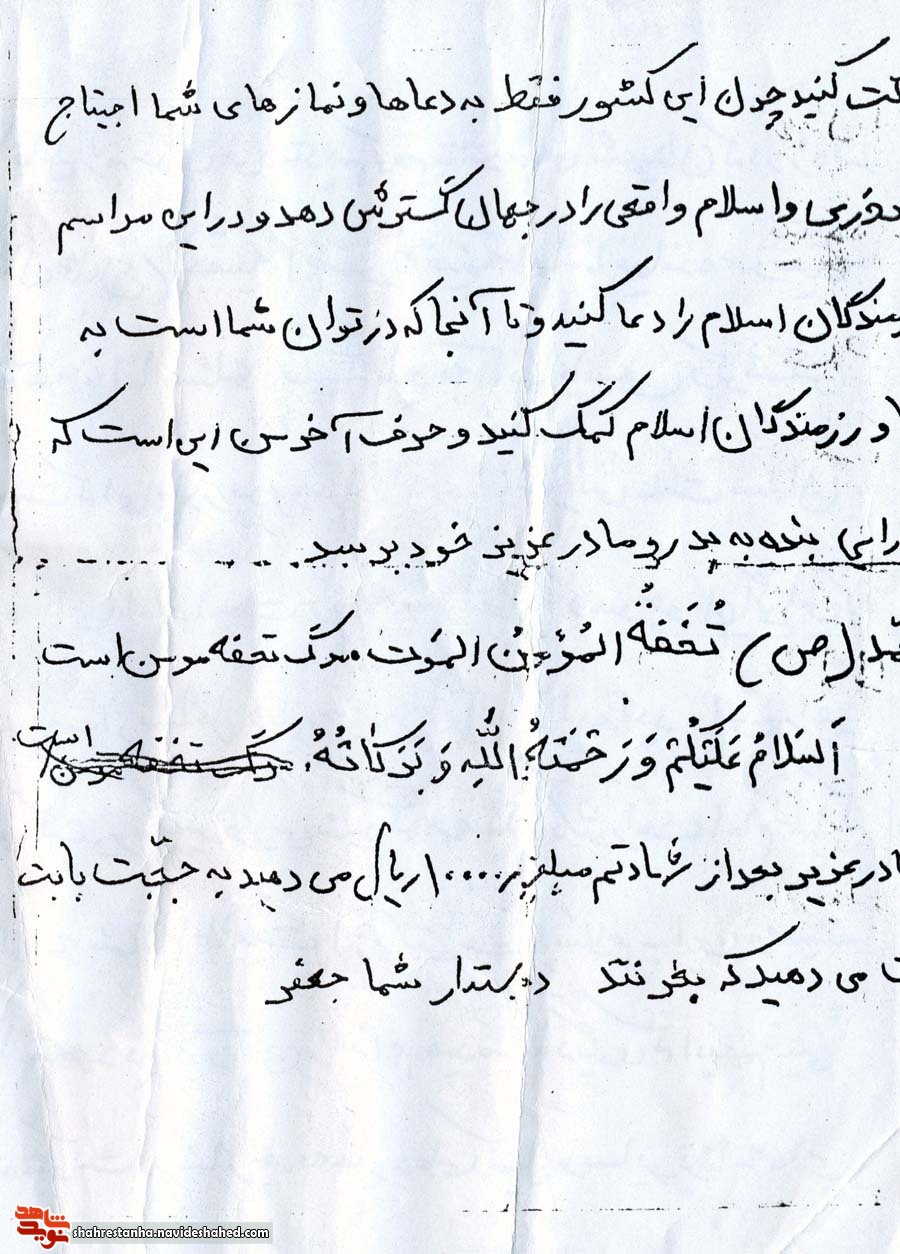 کنید چون این کشور فقط به دعاها و نمازهای شما احتیاج
و اسلام واقعی را در جهان گسترش دهد و در این مراسم
اسلام را دعا کنید و تا آنجا که در توان شما است به
و رزمندگان اسلام کمک کنید و حرف آخرم این است که
بنده به پدر و مادر عزیز خود برسد
(ص) تُحْفَةُ المُؤْمِنُ المَوت مرگ تحفه مومن است
اَلسَلامُ عَلَیْکُمْ وَ رَحْمَتَهُ اللَّهِ وَ بَرَکاتُهُ. است
عزیز بعد از شهادتم مبلغ ۱۰۰۰۰ ریال می دهید به حجّت بابت
می دهید که بخونند دوستدار شما جعفر
نوید شاهد
shahrestanha.navideshahed.com